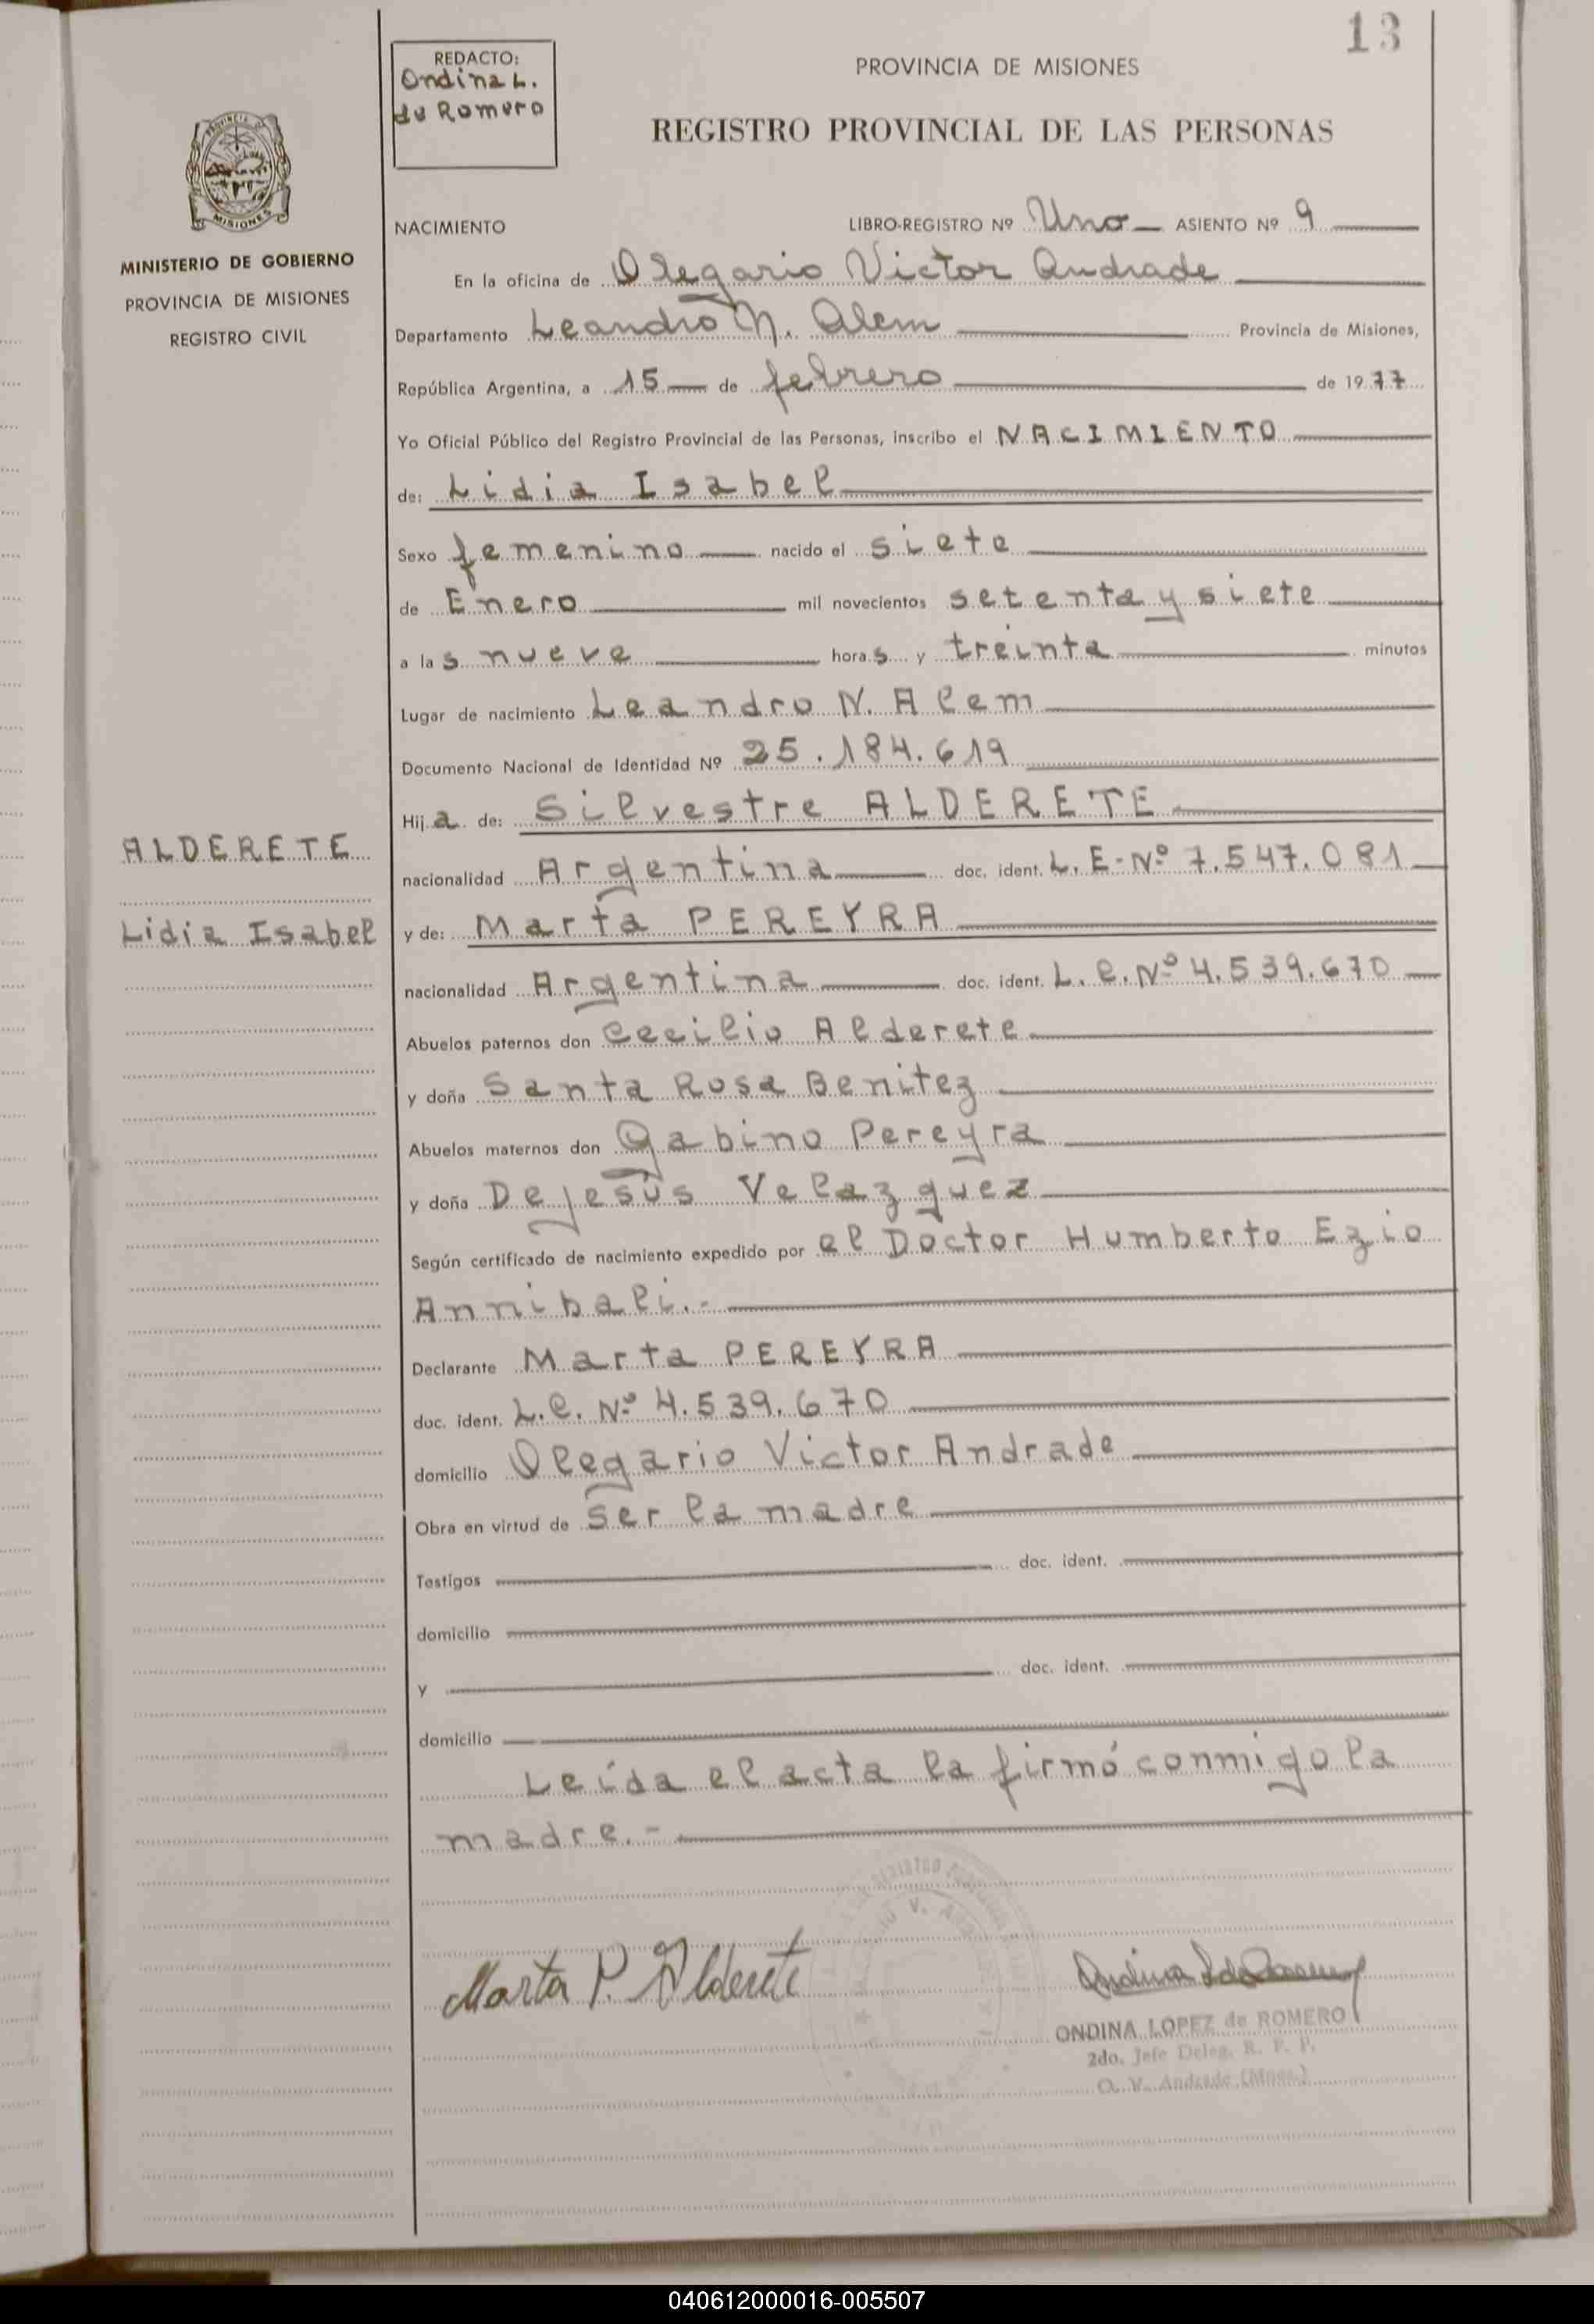 13
REDACTO:
Ondina L.
de Romero
PROVINCIA DE MISIONES
REGISTRO PROVINCIAL DE LAS PERSONAS
PROVINCIA DE
MISIONES
MINISTERIO DE GOBIERNO
PROVINCIA DE MISIONES
REGISTRO CIVIL
NACIMIENTO LIBRO-REGISTRO Nº Uno ASIENTO Nº 9
En la oficina de Olegario Victor Andrade
Departamento Leandro N. Alem Provincia de Misiones,
República Argentina, a 15 de febrero de 1977
Yo Oficial Público del Registro Provincial de las Personas, inscribo el NACIMIENTO
de: Lidia Isabel
Sexo femenino nacido el siete
de Enero mil novecientos setenta y siete
a las nueve horas y treinta minutos
Lugar de nacimiento Leandro N. Alem
Documento Nacional de Identidad Nº 25.184.619
Hija de: Silvestre ALDERETE
ALDERETE
nacionalidad Argentina doc. ident. L.E-Nº 7.547.081
Lidia Isabel
y de: Marta PEREYRA
nacionalidad Argentina doc. ident. L.C.Nº 4.539.670
Abuelos paternos don Cecilio Alderete
y doña Santa Rosa Benitez
Abuelos maternos don Gabino Pereyra
y doña De Jesús Velazquez
Según certificado de nacimiento expedido por el Doctor Humberto Ezio
Annibali.-
Declarante Marta PEREYRA
doc. ident. L.C. Nº 4.539.670
domicilio Olegario Victor Andrade
Obra en virtud de ser la madre
Testigos doc. ident.
domicilio
y doc. ident.
domicilio
Leída el acta la firmó conmigo la
madre.-
Marta P. Alderete
ONDINA LOPEZ de ROMERO
2do. Jefe Deleg. R. P. P.
O. V. Andrade (Mnes.)
040612000016-005507